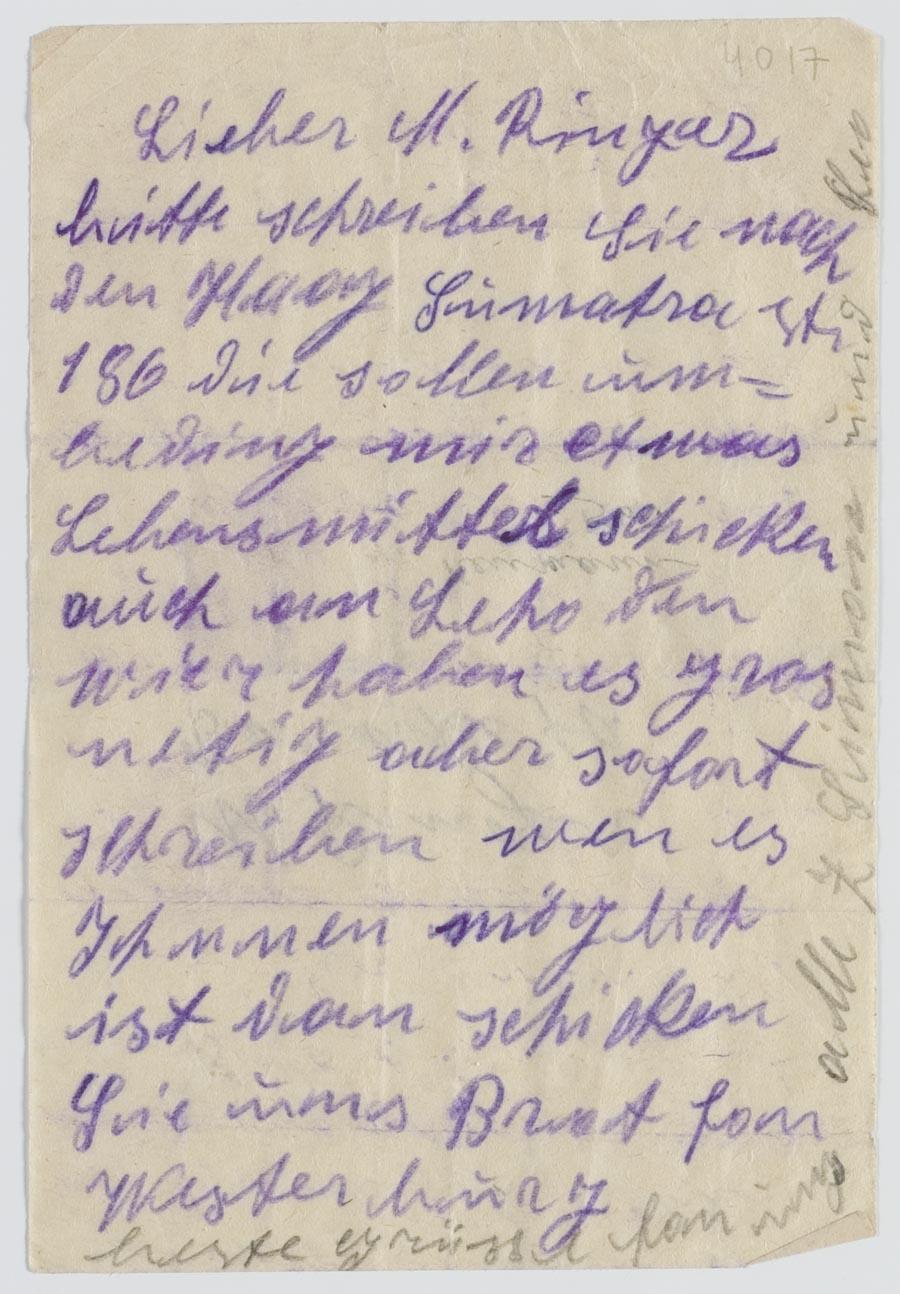 4017
Lieber M. Ringer
bitte schreiben Sie nach
den Haag Sumatra str
186 die sollen um=
beding mir etwas
Lebensmittel schicken
auch an Leho den
wier haben es gros
netig aber sofort
schreiben wen es
Ihnnen möglich
ist dan schicken
Sie uns Brot fon
Westerburg
beste grüsse fon uns
alle 7 Simons und Leo